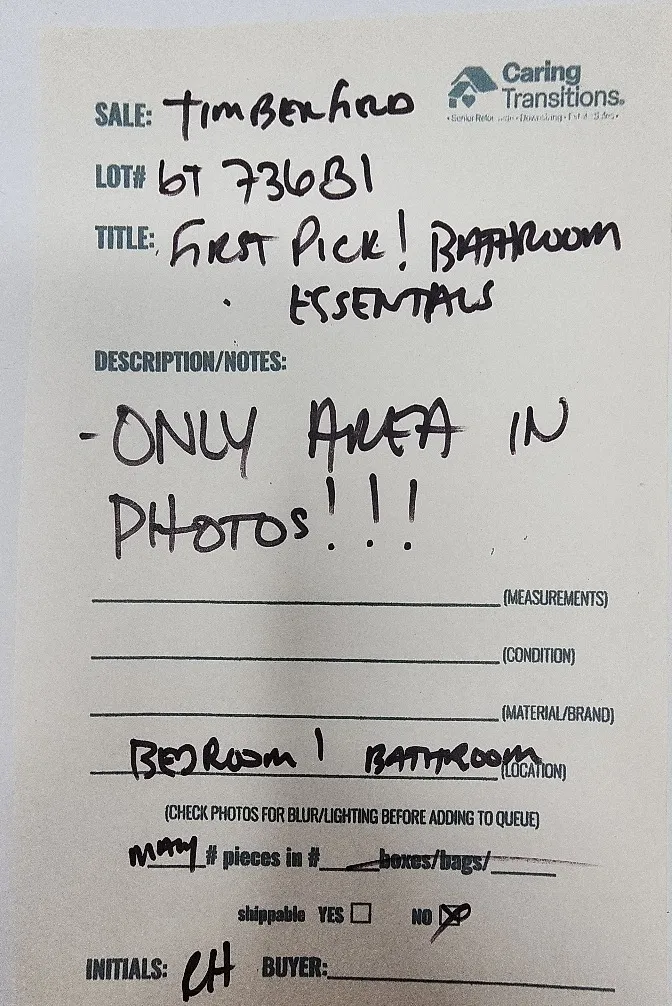 Caring
Transitions®
SALE: TIMBERFIELD
LOT# 6T 736B1
TITLE: FIRST PICK! BATHROOM
ESSENTALS
DESCRIPTION/NOTES:
-ONLY AREA IN
PHOTOS!!!
(MEASUREMENTS)
(CONDITION)
(MATERIAL/BRAND)
BEDROOM 1 BATHROOM (LOCATION)
(CHECK PHOTOS FOR BLUR/LIGHTING BEFORE ADDING TO QUEUE)
MANY # pieces in # boxes/bags/
shippable YES NO
INITIALS: RH BUYER: